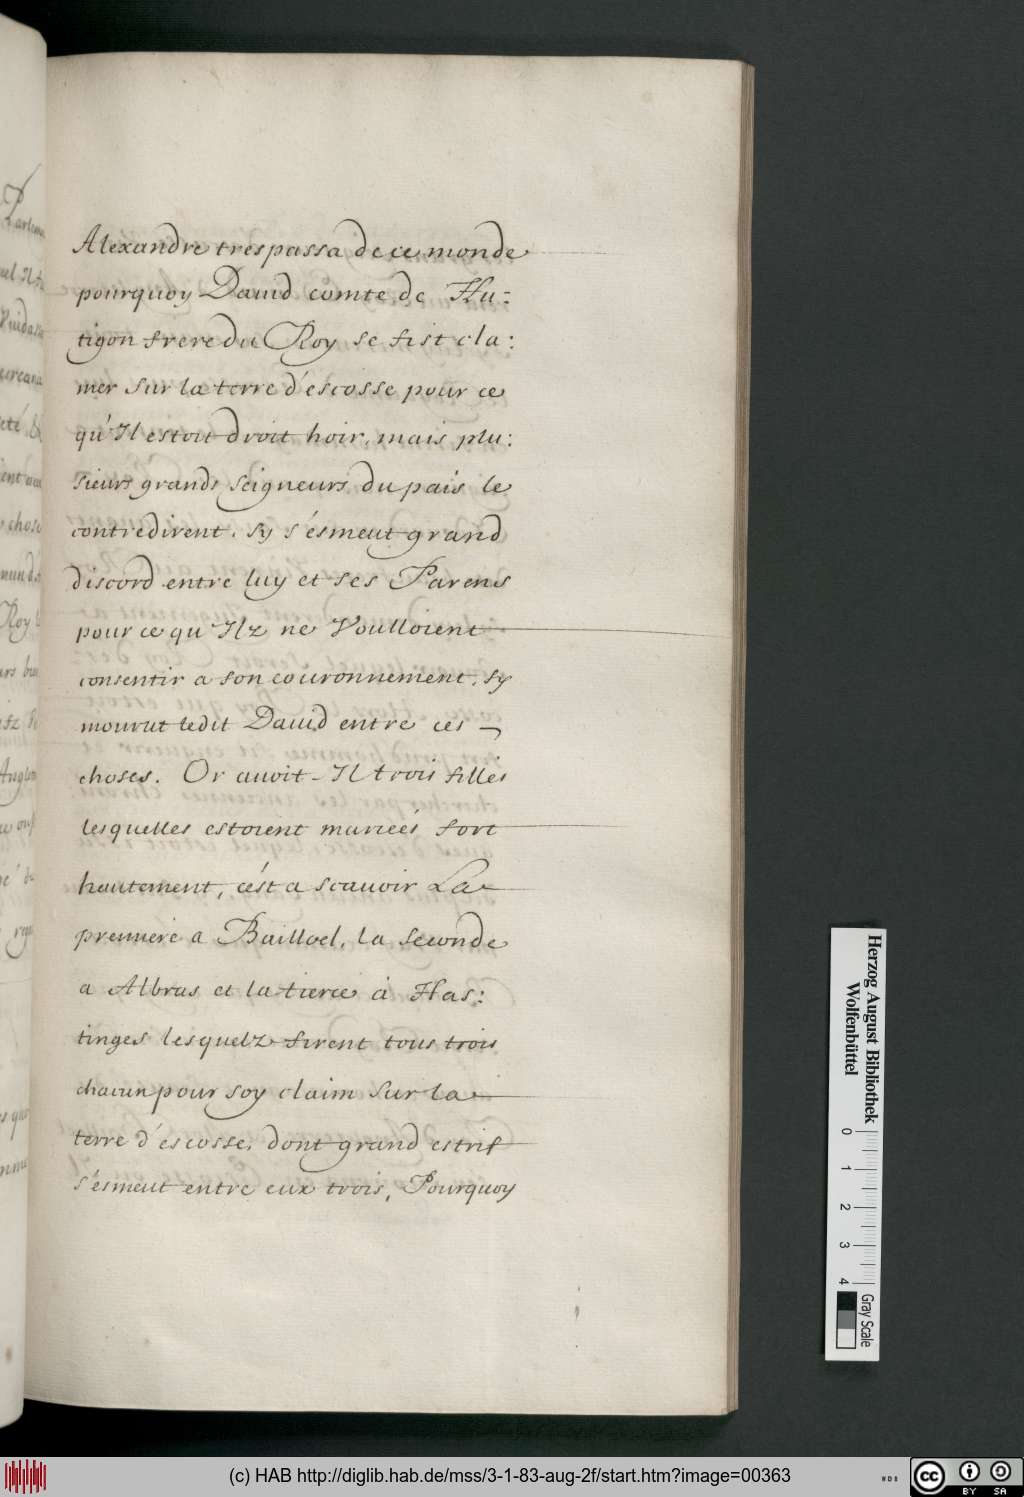 Alexandre trespassa de ce monde
pourquoy Dauid comte de Hu-
tigon frere du Roy se fist cla:
mer sur la terre d'escosse pour ce
qu'Il estoit droit hoir, mais plu:
sieurs grands seigneurs du païs le
contredirent. sy s'ésmeut grand
discord entre luy et ses Parens
pour ce qu'Ilz ne Voulloient
consentir a son couronnement. sy
mourut ledit Dauid entre ces
choses. Or auoit-Il trois filles
lesquelles estoient mariées fort
hautement, cést a scauoir La
premiere a Bailloel, la seconde
a Albras et la tierce à Has:
tinges lesquelz firent tous trois
chacun pour soy claim sur la
terre d'éscosse, dont grand estrif
s'ésmeut entre eux trois, Pourquoy
Herzog August Bibliothek
Wolfenbüttel
0 1 2 3 4
Gray Scale
(c) HAB http://diglib.hab.de/mss/3-1-83-aug-2f/start.htm?image=00363
cc BY SA